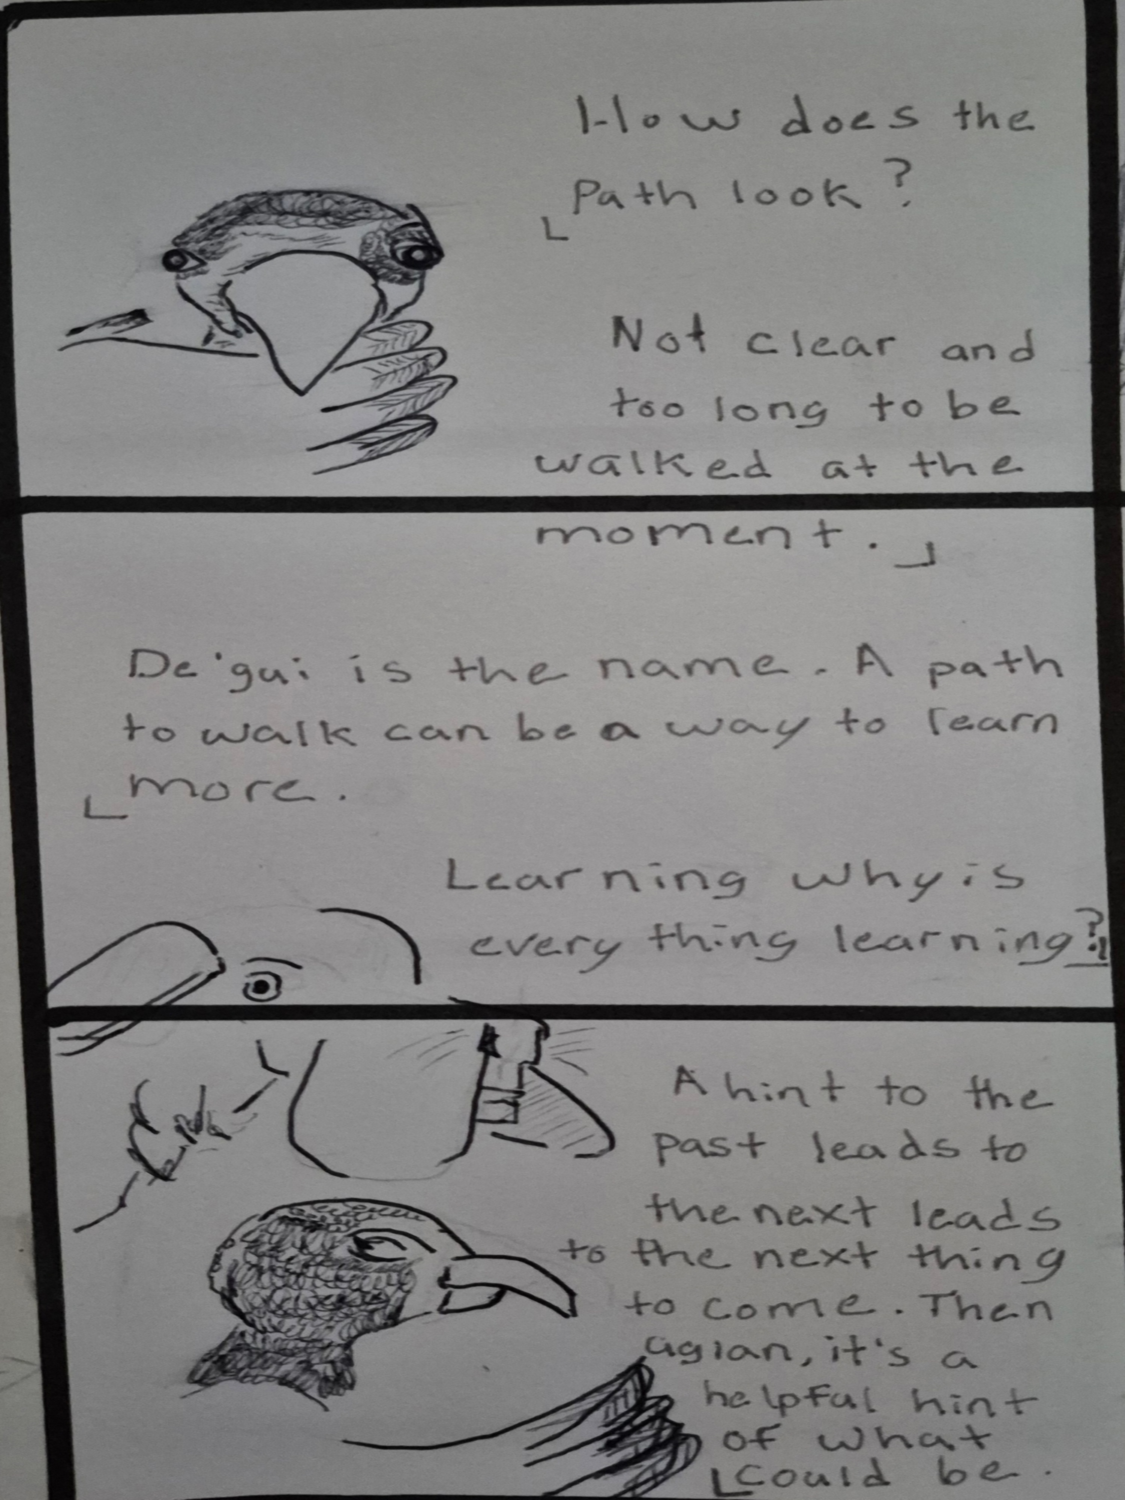 How does the
Path look?
Not clear and
too long to be
walked at the
moment.
De'gui is the name. A path
to walk can be a way to learn
more.
Learning why is
every thing learning?
A hint to the
past leads to
the next leads
to the next thing
to come. Then
agian, it's a
helpful hint
of what
could be.